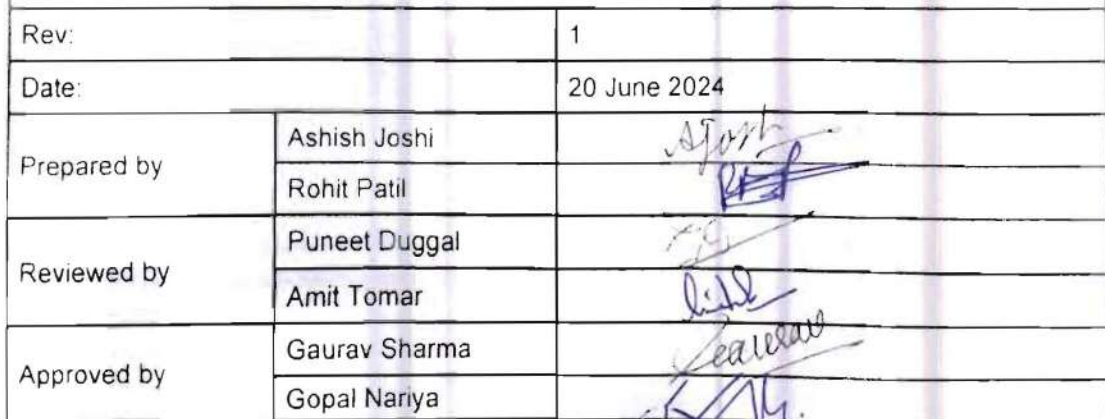 Rev: 1
Date: 20 June 2024
Prepared by
Ashish Joshi AJosh
Rohit Patil
Reviewed by
Puneet Duggal
Amit Tomar
Approved by
Gaurav Sharma Gaurav
Gopal Nariya